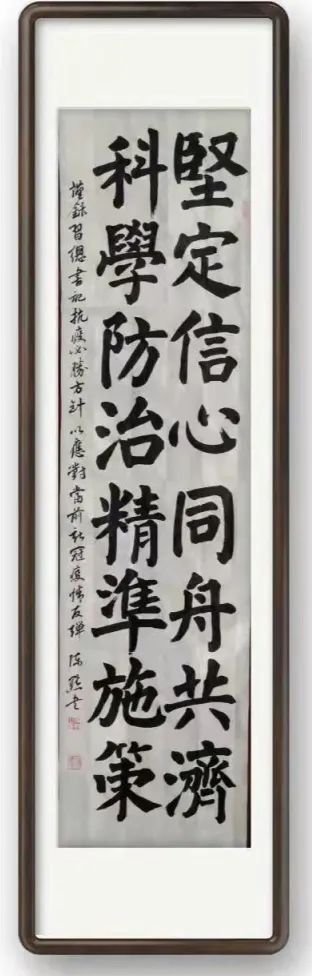 堅定信心同舟共濟
科學防治精準施策
謹錄習總書記抗疫必勝方針以應對當前新冠疫情反彈 陈